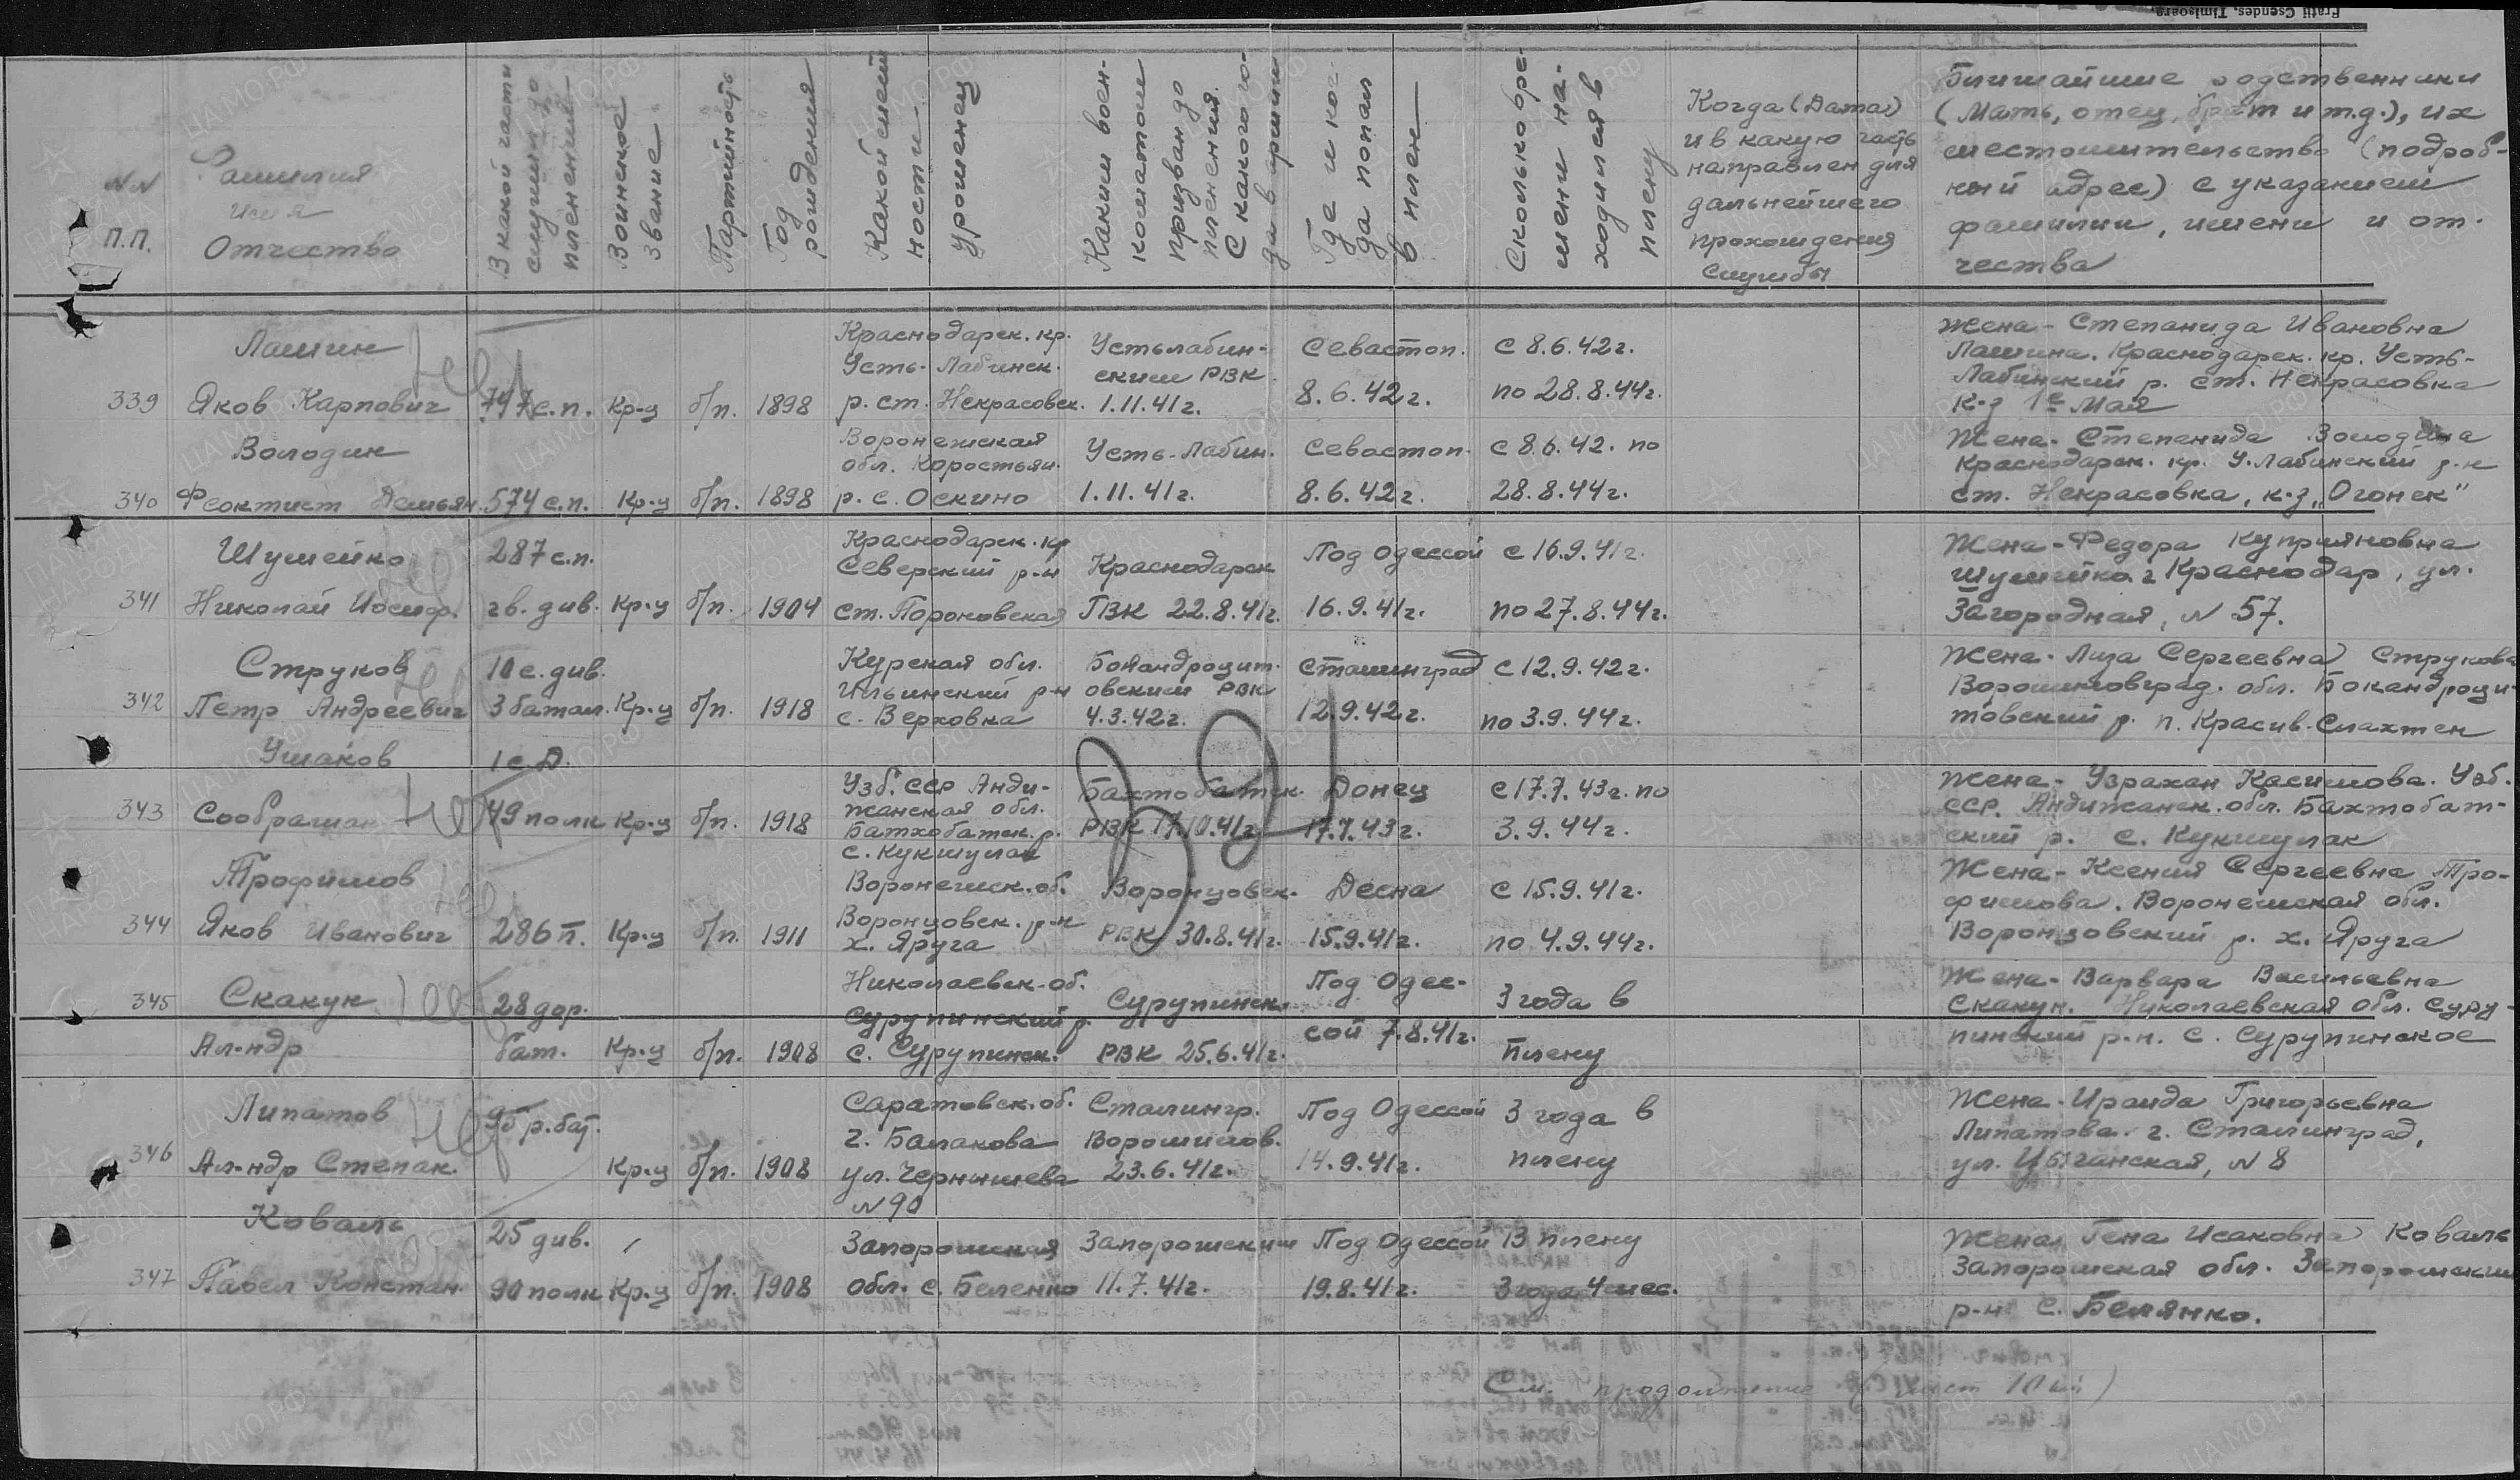 Fratii Csendes, Timişoara.
№№
П.П.
Фамилия
имя
Отчество
В какой части
служил до
пленения
Воинское
звание
Партийность
Год
рождения
Какой мест
ности
уроженец
Каким воен-
коматом
призван до
пленения.
С какого го-
да в армии
Где и ког-
да попал
в плен
Сколько вре-
мени на-
ходился в
плену
Когда (Дата)
и в какую часть
направлен для
дальнейшего
прохождения
службы
Ближайшие родственники
(мать, отец, брат и т.д.), их
местожительство (подроб-
ный адрес) с указанием
фамилии, имени и от-
чества
339
Лашин
Яков Карпович
747 с.п.
Кр-ц
б/п.
1898
Краснодарск. кр.
Усть-Лабинск.
р. ст. Некрасовск.
Устьлабин-
ским РВК
1.11.41г.
Севастоп.
8.6.42г.
с 8.6.42г.
по 28.8.44г.
Жена - Степанида Ивановна
Лашина. Краснодарск. кр. Усть-
Лабинский р. ст. Некрасовка
к-з 1е Мая
340
Володин
Феоктист Демьян.
574 с.п.
Кр-ц
б/п.
1898
Воронежская
обл. Коростьян.
р. с. Оскино
Усть-Лабин.
1.11.41г.
Севастоп.
8.6.42г.
с 8.6.42. по
28.8.44г.
Жена - Степенида Володина
Краснодарск. кр. У.Лабинский р-н
ст. Некрасовка, к-з „Огонек"
341
Шумейко
Николай Иосиф.
287 с.п.
гв. див.
Кр-ц
б/п.
1904
Краснодарск. кр
Северский р-н
ст. Пороновская
Краснодарск
ГВК 22.8.41г.
Под Одессой
16.9.41г.
с 16.9.41г.
по 27.8.44г.
Жена - Федора Куприяновна
Шумейко г Краснодар, ул.
Загородная, № 57.
342
Струков
Петр Андреевич
10 с. див.
3 батал.
Кр-ц
б/п.
1918
Курская обл.
Ильинский р-н
с. Верховка
Бокандроцит-
овским РВК
4.3.42г.
Сталинград
12.9.42г.
с 12.9.42г.
по 3.9.44г.
Жена - Лиза Сергеевна Струкова
Ворошиловград. обл. Бокандроци-
товский р. п. Красив. Слахтен
343
Ушаков
Сообраман
1 с.Д.
49 полк
Кр-ц
б/п.
1918
Узб. ССР Анди-
жанская обл.
Батхобатск. р.
с. Кукшулак
Бахтобатск.
РВК 17.10.41г
Донец
17.7.43г.
с 17.7.43г. по
3.9.44г.
Жена - Узрахан Касимова. Узб.
ССР. Андижанск. обл. Бахтобат-
ский р. с. Кукшулак
344
Трофимов
Яков Иванович
286 п.
Кр-ц
б/п.
1911
Воронежск. об.
Воронцовск. р-н
х. Яруга
Воронцовск.
РВК 30.8.41г.
Десна
15.9.41г.
с 15.9.41г.
по 4.9.44г.
Жена - Ксения Сергеевна Тро-
фимова. Воронежская обл.
Воронцовский р. х. Яруга
345
Скакун
Ал-ндр
28 дор.
бат.
Кр-ц
б/п.
1908
Николаевск. об.
Сурупинский р.
с. Сурупинск.
Сурупинск.
РВК 25.6.41г.
Под Одес-
сой 7.8.41г.
3 года в
плену
Жена - Варвара Васильевна
Скакун. Николаевская обл. Суру-
пинский р-н. с. Сурупинское
346
Липатов
Ал-ндр Степан.
95 р. бат.
Кр-ц
б/п.
1908
Саратовск. об.
г. Балакова
ул. Чернышева
№ 90
Сталингр.
Ворошилов.
23.6.41г.
Под Одессой
14.9.41г.
3 года в
плену
Жена - Ираида Григорьевна
Липатова. г. Сталинград,
ул. Цыганская, № 8
347
Коваль
Павел Констан.
25 див.
90 полк
Кр-ц
б/п.
1908
Запорожская
обл. с. Беленко
Запорожским
11.7.41г.
Под Одессой
19.8.41г.
В плену
3 года 4 мес.
Жена Гена Исаковна Коваль
Запорожская обл. Запорожский
р-н с. Белянко.
См. продолжение (лист 10й)